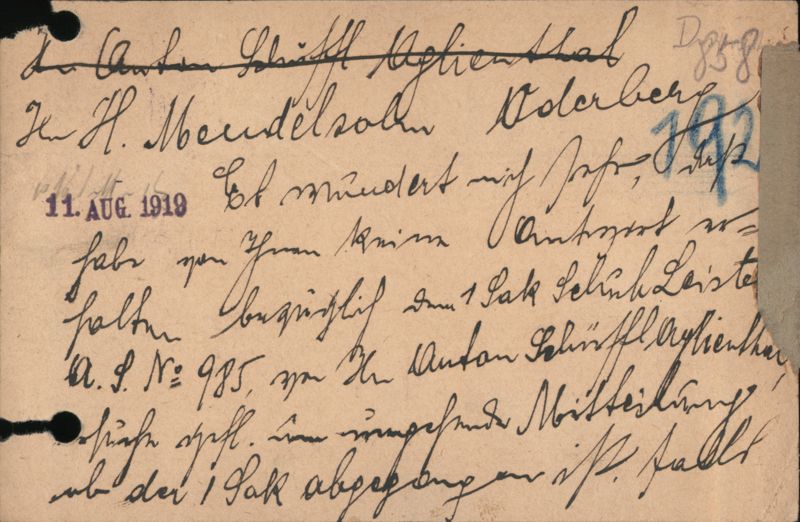 Hr Anton Schüffl Aglienthal
Hr H. Mendelsohn Oderberg
192
11. AUG. 1919
Es wundert mich sehr, daß
habe von Ihnen keine Antwort er=
halten bezüglich dem 1 Sak Schuh Leiste
A. S. No 985, von Hr Anton Schüffl Aglienthal,
rsuche gefl. um umgehende Mitteilung
ob der 1 Sak abgegangen ist. falls